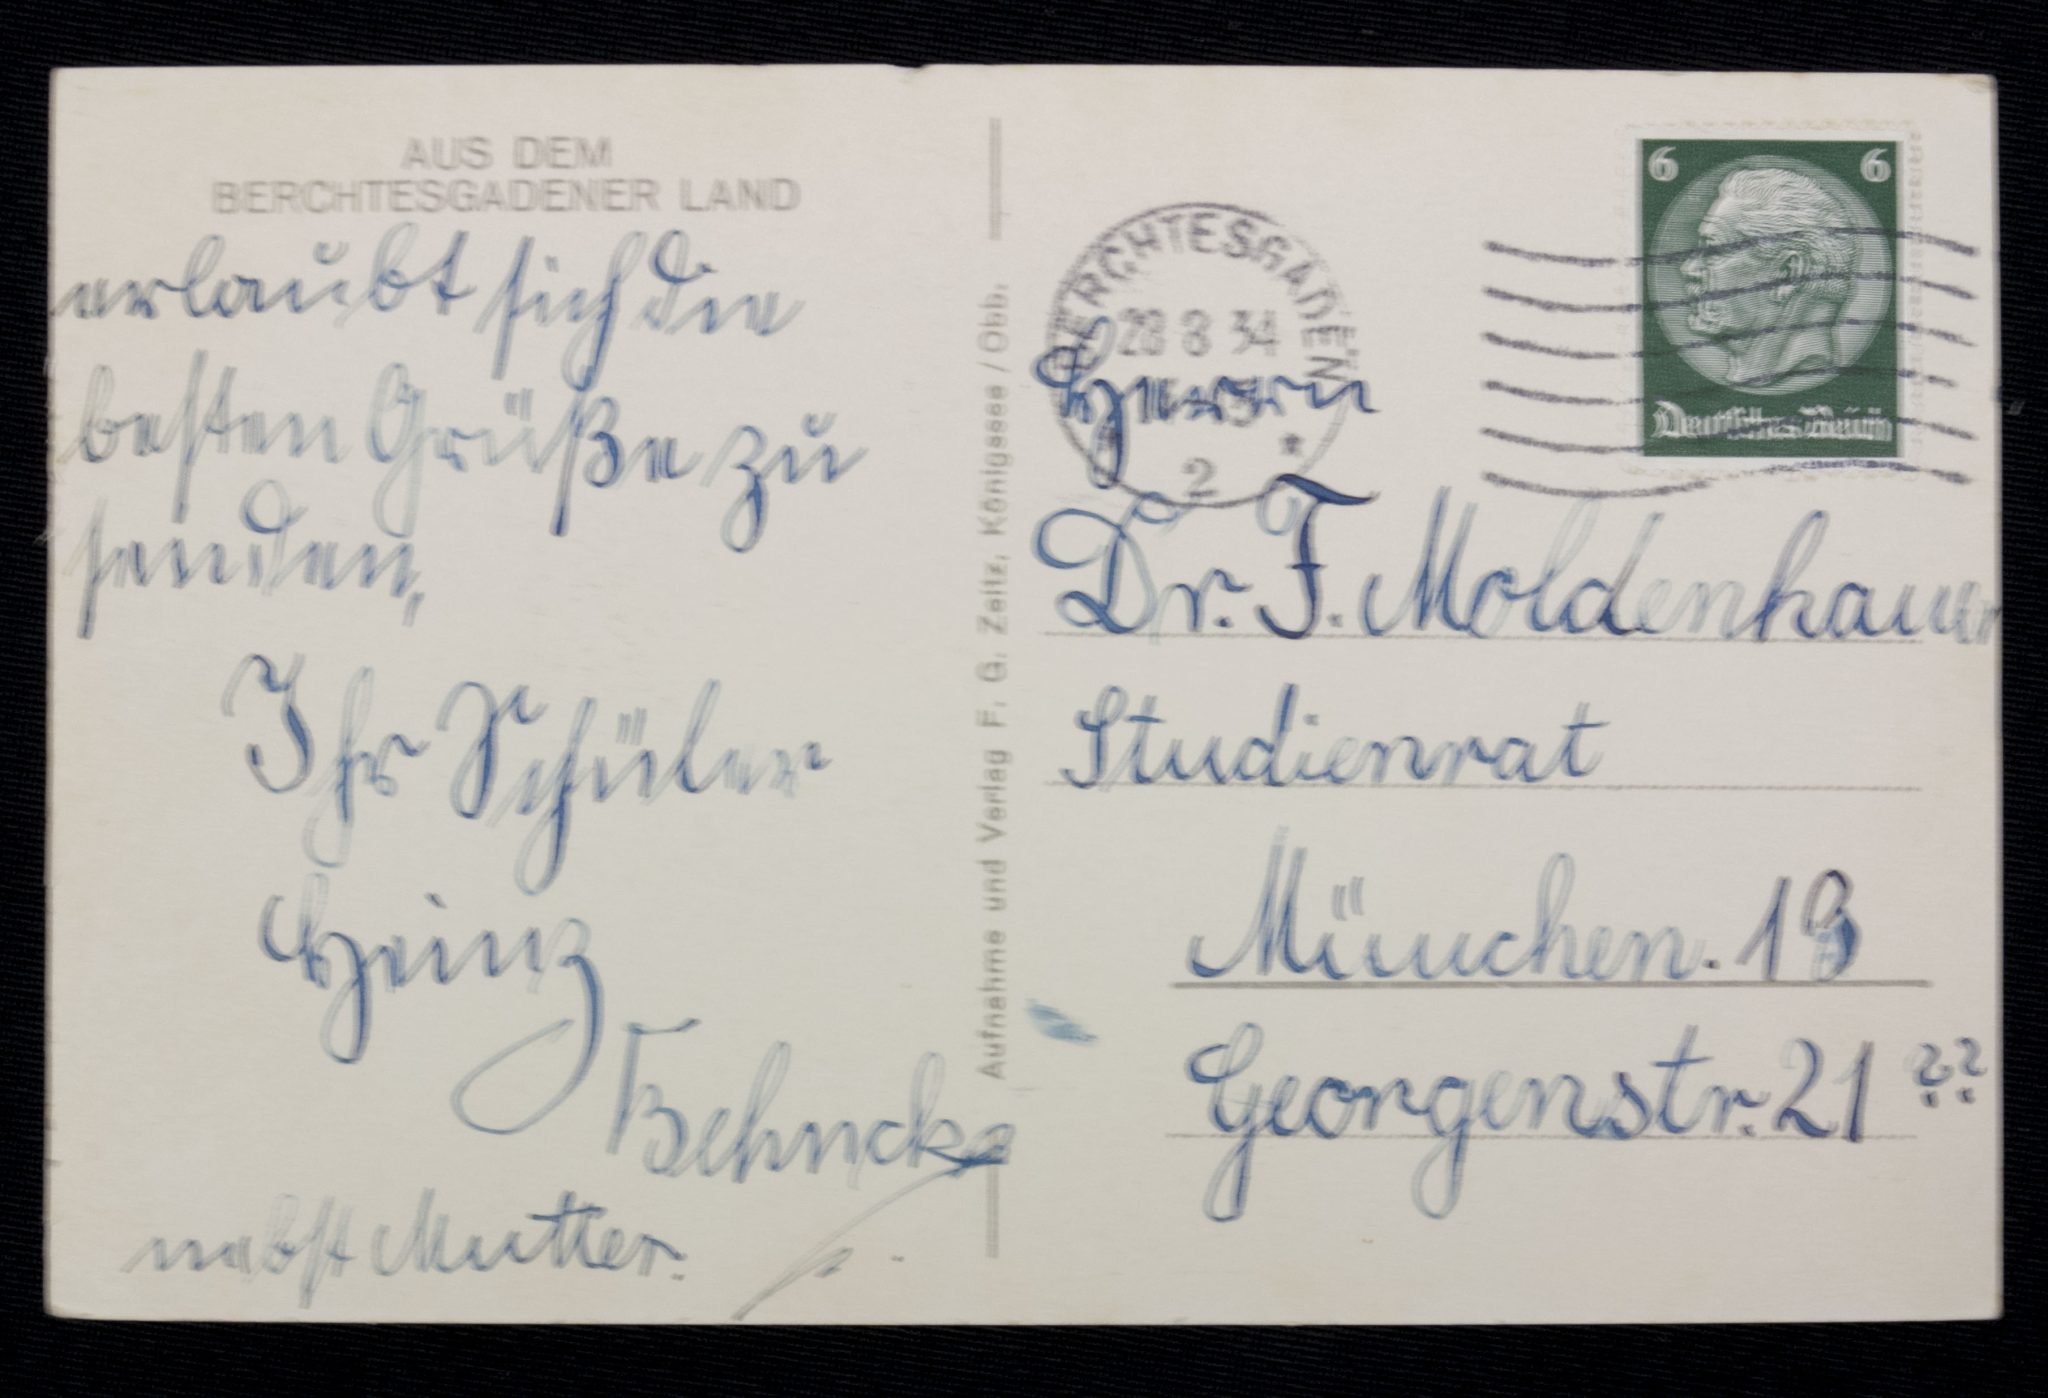 AUS DEM
BERCHTESGADENER LAND
erlaubt sich die
besten Grüße zu
senden,
Ihr Schüler
Heinz
Behncke
nebst Mutter.
Aufnahme und Verlag F. G. Zeitz, Königssee / Obb.
BERCHTESGADEN
28 8 34
2
6 6
Deutsches Reich
Herrn
Dr. F. Moldenhauer
Studienrat
München. 19
Georgenstr. 21 ??